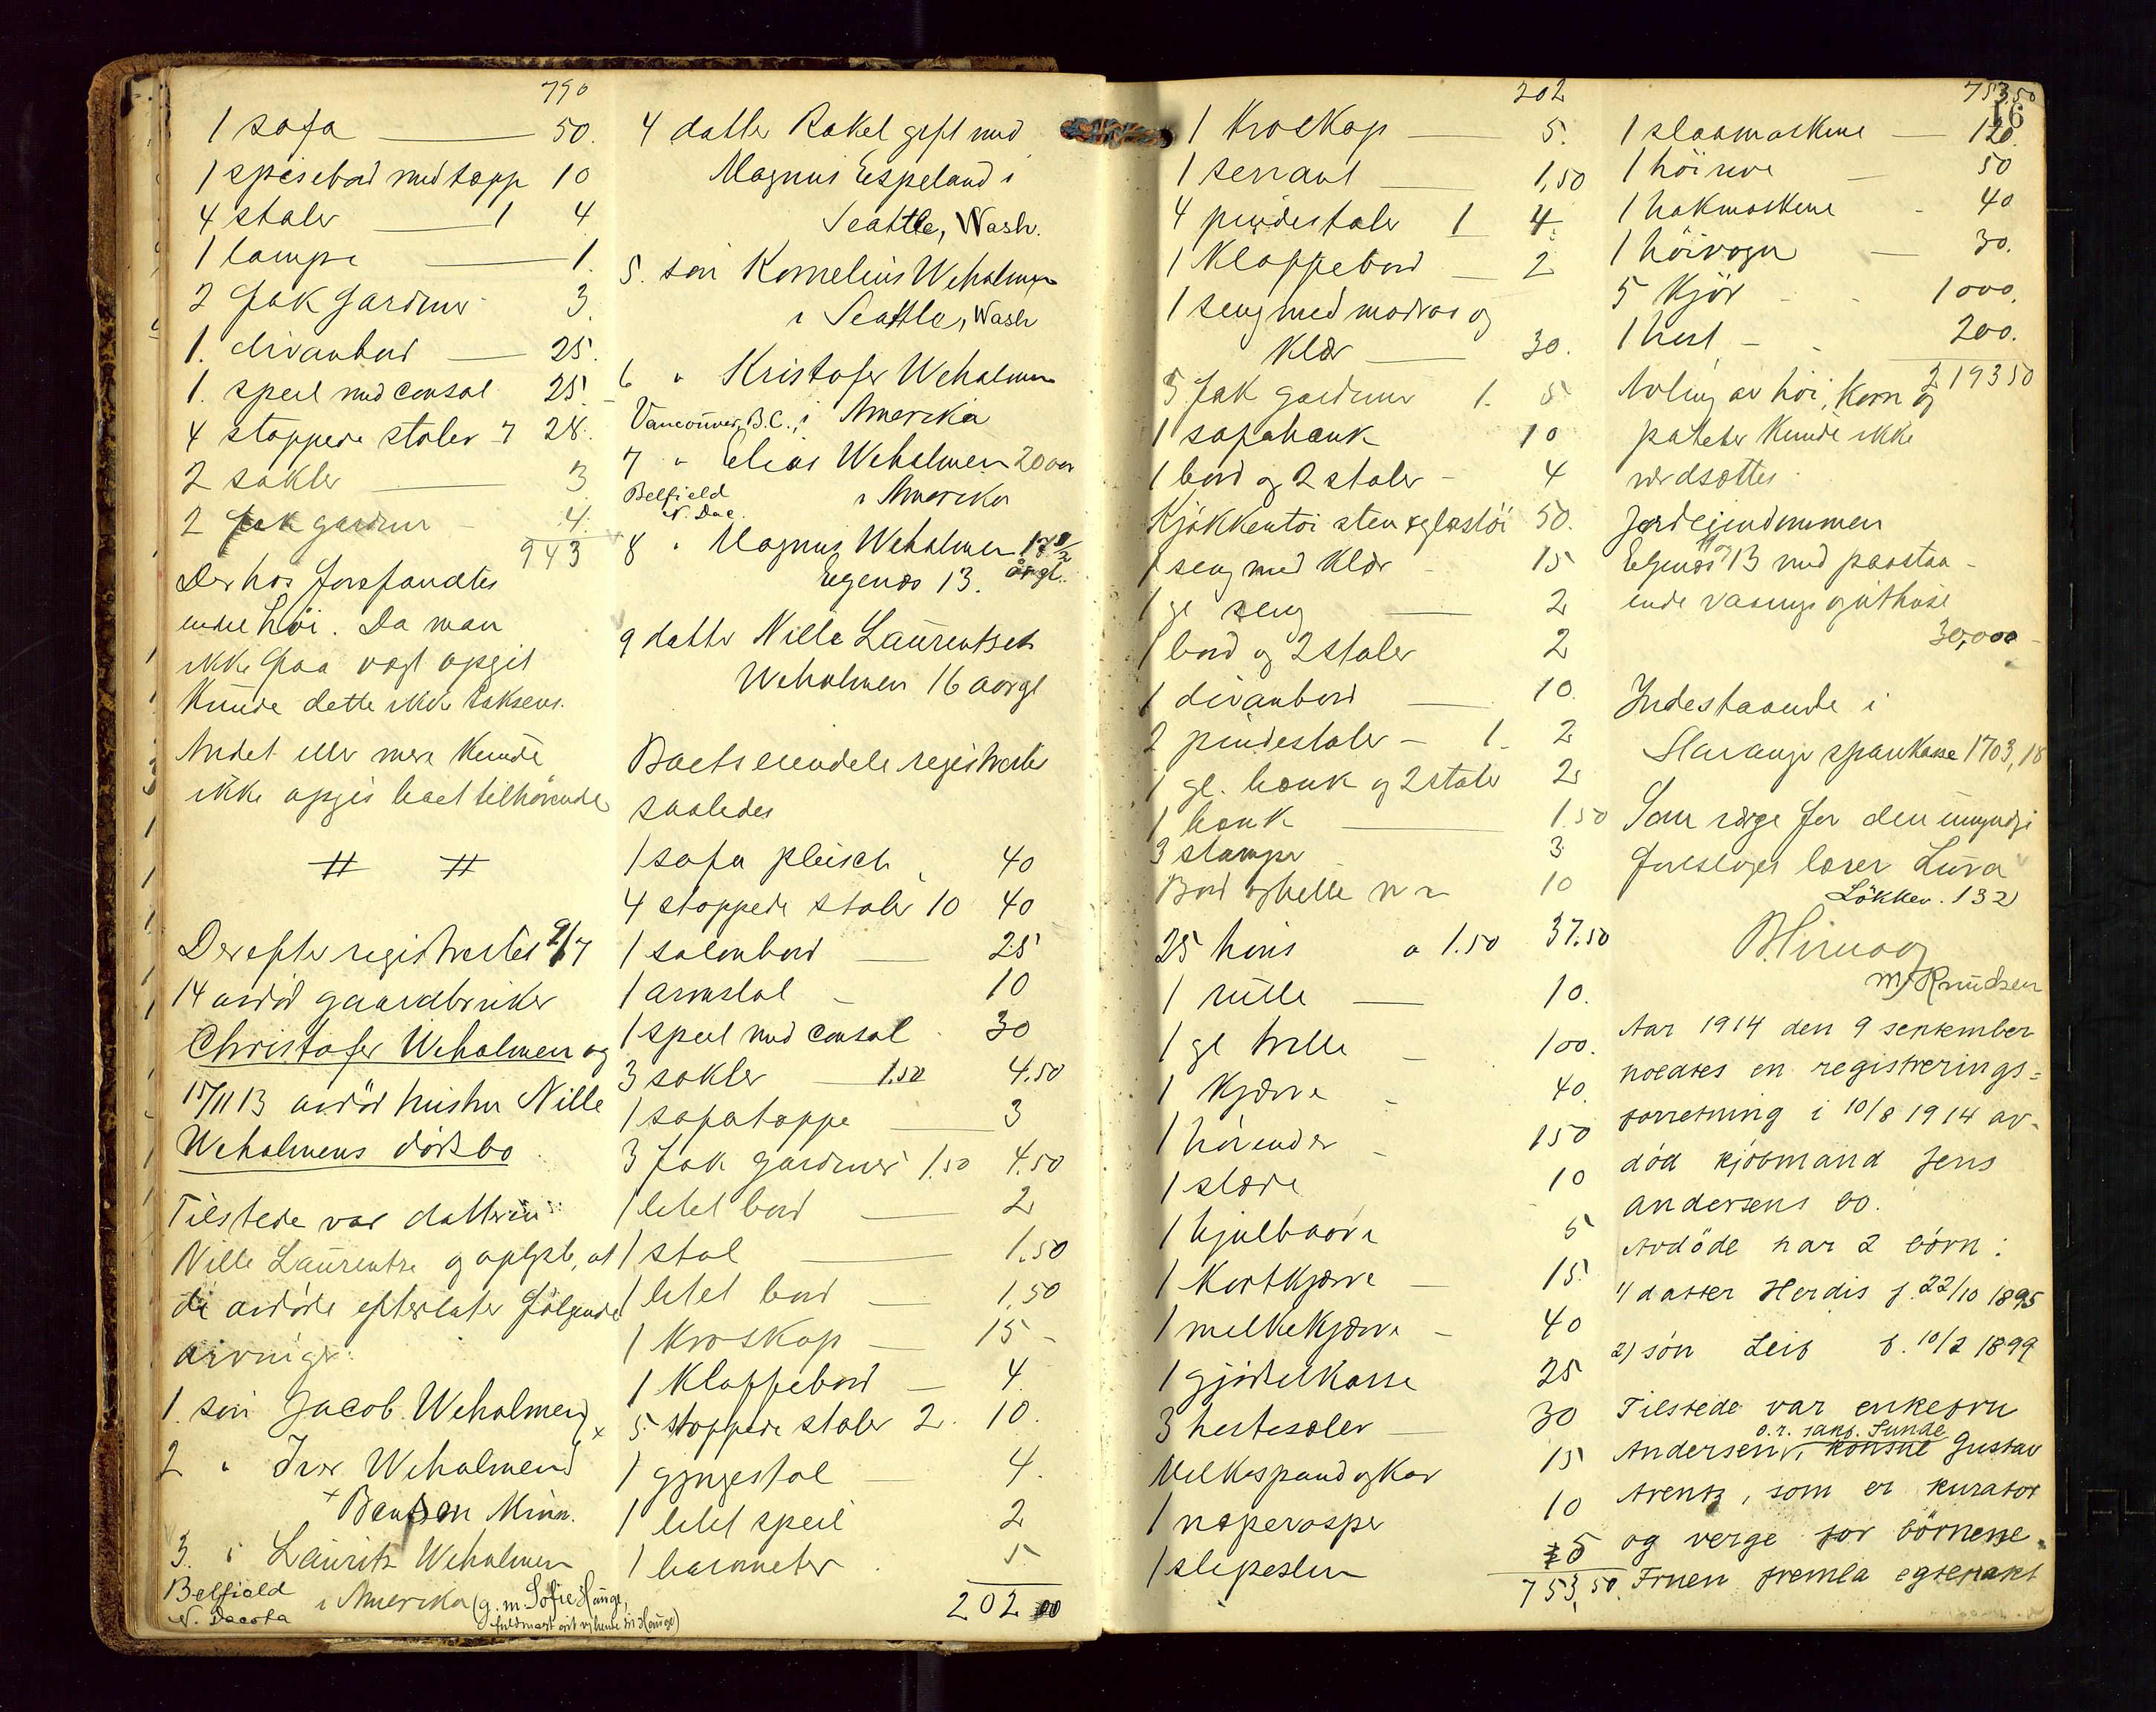 790
1 sofa 50.
1 spisebord med tæpp 10
4 stoler 1 4
1 lampe 1.
2 fak gardiner 3.
1. divanbord 25.
1. speil med consol 25.
4 stoppede stoler 7 28.
2 sokler 3
2 fak gardiner 4.
943
Derhos forefandtes
endel höi. Da man
ikke faa vegt opgit
kunde dette ikke takseres.
Andet eller mere kunde
ikke opgis boet tilhörende
# #
Derefter registrertes 9/7
14 avdöd gaardbruker
Christofer Weholmen og
15/11 13 avdöd hustru Nille
Weholmens dödsbo
Tilstede var datteren
Nille Laurentze og oplyste, at
de avdöde efterlater fölgende
arvinger:
1. sön Jacob Weholmen x
2 " Iver Weholmen
x Bentson Minn.
3. " Lauritz Weholmen
Belfield i Amerika (g. m. Sofie Hauge,
N. Dacota
4 datter Rakel gift med
Magnus Espeland i
Seattle, Wash.
5. sön Kornelius Weholmen
i Seattle, Wash
6 " Kristofer Weholmen
Vancouver, B.C., i Amerika
7 " Elias Weholmen 20 aar
Belfield i Amerika
N. Dac.
8 " Magnus Weholmen 17 1/2
Egenæs 13. årgl.
9 datter Nille Laurentze
Weholmen 16 aargl
Boets eiendele registrertes
saaledes
1 sofa pleisch 40
4 stoppede stoler 10 40
1 salonbord 25
1 armstol 10
1 speil med consol 30
3 sokler 1.50 4.50
1 sofatæppe 3
3 fak gardiner 1.50 4.50
1 litet bord 2
1 stol 1.50
1 litet bord 1,50
1 kroskap 15
1 klappebord 4.
5 stoppede stoler 2. 10.
1 gyngestol 4.
1 litet speil 2
1 barometer 5
202 00
202
1 kroskap 5.
1 servant 1,50
4 pindestoler 1 4.
1 klappebord 2
1 seng med madras og
klær 30.
5 fak gardiner 1. 5
1 sofabænk 10
1 bord og 2 stoler 4
Kjökkentöi sten & glastöi 50.
1 seng med klær 15
1 gl seng 2
1 bord og 2 stoler 2
1 divanbord 10.
2 pindestoler 1. 2
1 gl. bænk og 2 stoler 2
1 bænk 1.50
3 lamper 3
Bord og hylle m m 10
25 höns a 1.50 37.50
1 rulle 10.
1 gl trille 100.
1 kjærre 40.
1 hövender 150
1 slæde 10
1 hjulbaare 5
1 kortkjærre 15.
1 melkekjærre 40
1 gjödselkasse 25
3 hestesæler 30
Melkespand og kar 15
1 neperasper 10
1 slipesten 5
753,50.
753.50
16
1 slaamaskine 120.
1 höirive 50
1 hakmaskine 40
1 höivogn 30.
5 kjör 1000.
1 hest 200.
2193 50
Avling av höi, korn og
poteter kunde ikke
værdsættes.
Jordeiendommen
Egenæs 13 med paastaa-
ende vaanings og uthuse
30,000
Indestaaende i
Stavanger sparekasse 1703,18
Som værge for den umyndige
foreslages lærer Lura
Lökkev. 132
M. Knudsen
Aar 1914 den 9 september
holdtes en registrerings-
forretning i 10/8 1914 av-
död kjöbmand Jens
Andersens bo.
Avdöde har 2 börn:
1) datter Herdis f. 22/10 1895
2) sön Leif f. 10/2 1899
Tilstede var enkefru
o.r. sakf. Sunde
Andersen, konsul Gustav
Arentz, som er kurator
og verge for börnene.
Fruen fremla egtepakt